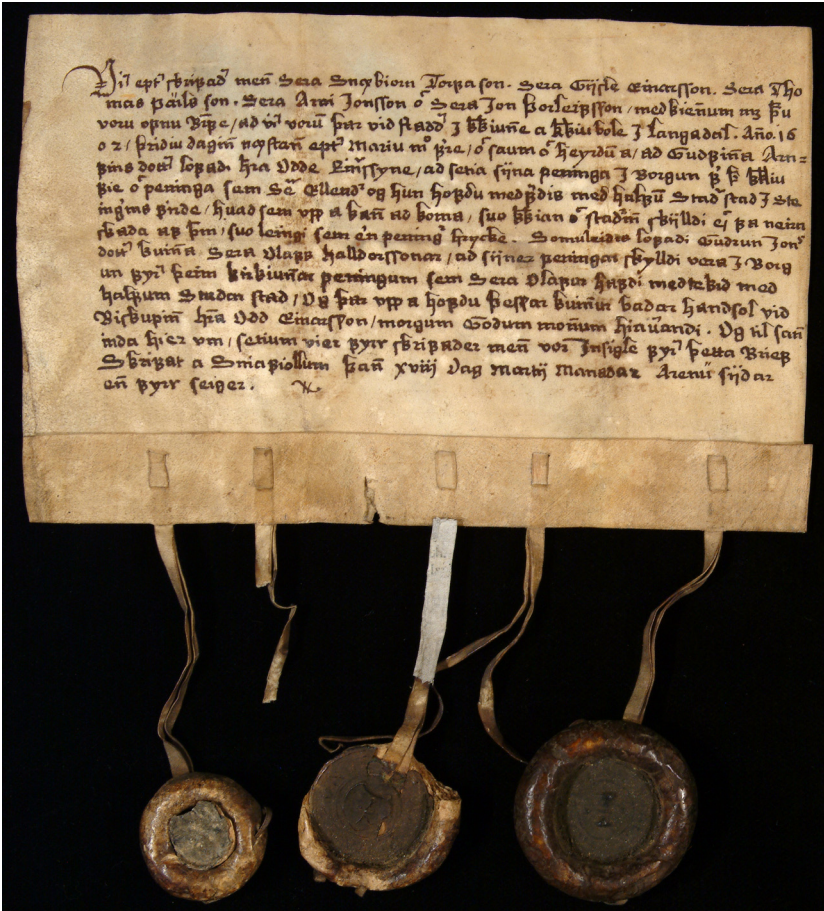 Vi᷎r eptꝰ skrifadꝰ men̄ Sera Snæbiorn Torfason. Sera Gijsle Einarsson. Sera Tho
mas pꜳls son. Sera Arni Jonsson oc Sera Jon þorleifsson / medkien̄um
voru ofnu Brefe / ad vier vorum̄ þar vid stadder J a kirkiubole J Langadal. Año. 16
02 / þridiu dagin̄ næstan̄ eptꝰ Mariu / saum oc heyrdum a / ad Gudfin̄a Arn=
fins dotter lofadi hꝰra Odde Einarssyne / ad setia sijna peninga J Borgun
fie oc peninga sem Sera Ellendꝰ og hun hofdu medferdis med halfum Stadarstad J Ste
ingrims firde / huad sem upp a kan̄ ad koma / suo kirkian oc stadurin̄ skijlldi ei fa neirn
skada af þui / suo leingi sem en̄ peningꝰ hrycke. Somuleidis lofadi Gudrun Jons
dotter kuin̄a Sera Olafs Halldorssonar / ad sijner peningar skylldi vera J Borg
un fyrꝰ þeim kirkiun̄ar peningum sem Sera Olafur hafdi medtekid med
halfum Stadar stad / Og þar upp a hofdu þessar kuin̄ur badar handsol vid
Biskupin̄ hꝰra Odd Einarsson / morgum Godum mon̄um hiaverandi. Og til san̄
inda hier um / setium vier fyrr skrifader men̄ vor Jnsigle fyrꝰ þetta Brief
Skrifat a Smiafiollum þan̄ xviij Dag Martij Manadar Arenu sijdar
en̄ fyrr seiger.